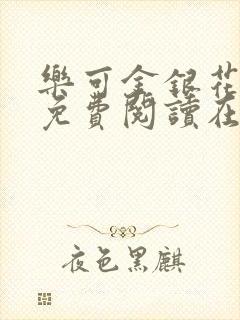 樂可金銀花
免費閱讀在
夜色黑麒